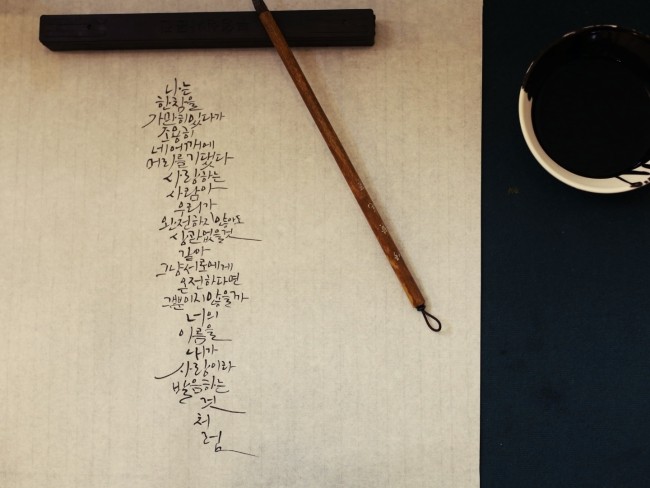 나는
한참을
가만히 있다가
조용히
네 어깨에
머리를 기댔다
사랑하는
사람아
우리가
완전하지 않아도
상관없을 것
같아
그냥 서로에게
온전하다면
그뿐이지 않을까
너의
이름을
내가
사랑이라
발음하는
것
처
럼